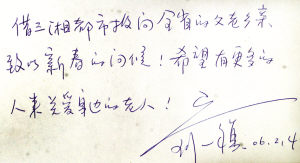 借三湘都市报向全省的父老乡亲
致以新春的问候！希望有更多的
人来关爱身边的老人！
刘一 06.2.4